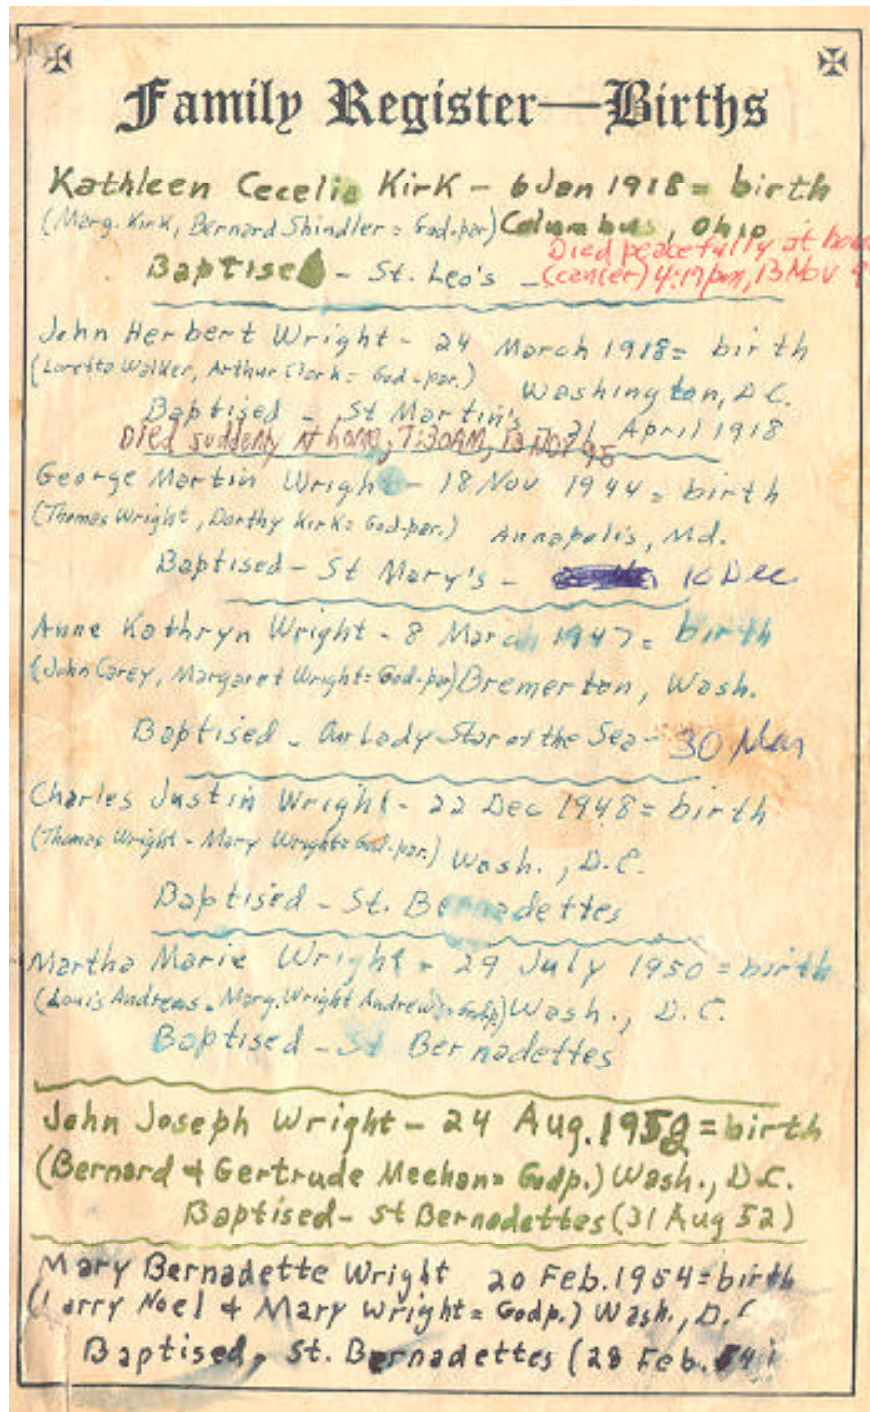 Family Register—Births
Kathleen Cecelia Kirk - 6 Jan 1918 = birth
(Marg. Kirk, Bernard Shindler = God-par) Columbus, Ohio
Died peacefully at
Baptised - St. Leo's - (cancer) 4:17pm, 13 Nov
John Herbert Wright - 24 March 1918 = birth
(Loretta Walker, Arthur Clark = God-par.)
Washington, D.C.
Baptised - St Martin's - 21 April 1918
Died suddenly at home, 7:30AM, 13 Nov 98
George Martin Wright - 18 Nov 1944 = birth
(Thomas Wright, Dorthy Kirk = God-par.) Annapolis, Md.
Baptised - St Mary's - 10 Dec
Anne Kathryn Wright - 8 March 1947 = birth
(John Carey, Margaret Wright = God-par) Bremerton, Wash.
Baptised - Our Lady Star of the Sea - 30 Mar
Charles Justin Wright - 22 Dec 1948 = birth
(Thomas Wright - Mary Wright = God-par.) Wash., D.C.
Baptised - St. Bernadettes
Martha Marie Wright - 29 July 1950 = birth
(Louis Andrews - Marg. Wright Andrews = Godp) Wash., D.C.
Baptised - St Bernadettes
John Joseph Wright - 24 Aug. 1952 = birth
(Bernard + Gertrude Meehan = Godp.) Wash., D.C.
Baptised - St Bernadettes (31 Aug 52)
Mary Bernadette Wright 20 Feb. 1954 = birth
(Larry Noel + Mary Wright = Godp.) Wash., D.C
Baptised, St. Bernadettes (28 Feb. 54)